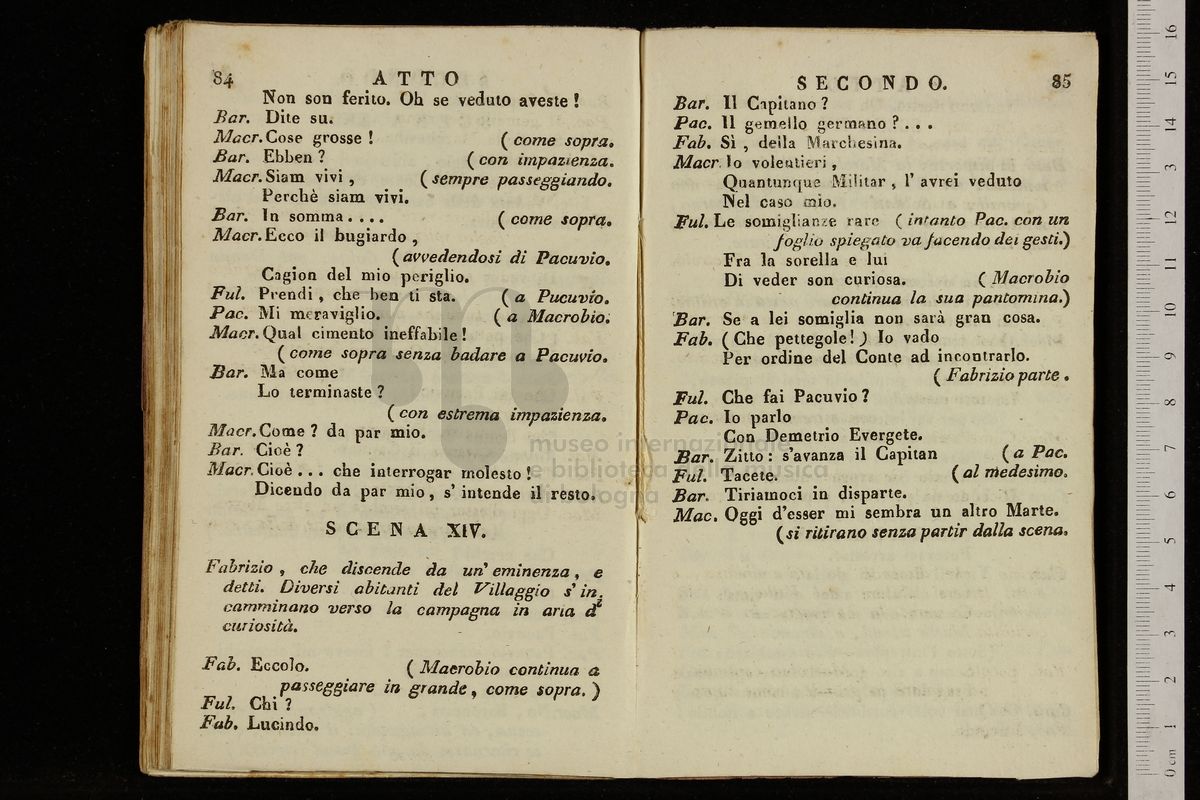 84 ATTO
Non son ferito. Oh se veduto aveste!
Bar. Dite su.
Macr. Cose grosse! (come sopra.
Bar. Ebben? (con impazienza.
Macr. Siam vivi, (sempre passeggiando.
Perchè siam vivi.
Bar. In somma.... (come sopra.
Macr. Ecco il bugiardo,
(avvedendosi di Pacuvio.
Cagion del mio periglio.
Ful. Prendi, che ben ti sta. (a Pucuvio.
Pac. Mi meraviglio. (a Macrobio.
Macr. Qual cimento ineffabile!
(come sopra senza badare a Pacuvio.
Bar. Ma come
Lo terminaste?
(con estrema impazienza.
Macr. Come? da par mio.
Bar. Cioè?
Macr. Cioè... che interrogar molesto!
Dicendo da par mio, s'intende il resto.
SCENA XIV.
Fabrizio, che discende da un' eminenza, e
detti. Diversi abitanti del Villaggio s' in-
camminano verso la campagna in aria di
curiosità.
Fab. Eccolo. (Macrobio continua a
passeggiare in grande, come sopra.)
Ful. Chi?
Fab. Lucindo.
SECONDO. 85
Bar. Il Capitano?
Pac. Il gemello germano?...
Fab. Sì, della Marchesina.
Macr. Io volentieri,
Quantunque Militar, l' avrei veduto
Nel caso mio.
Ful. Le somiglianze rare (intanto Pac. con un
foglio spiegato va facendo dei gesti.)
Fra la sorella e lui
Di veder son curiosa. (Macrobio
continua la sua pantomina.)
Bar. Se a lei somiglia non sarà gran cosa.
Fab. (Che pettegole!) Io vado
Per ordine del Conte ad incontrarlo.
(Fabrizio parte.
Ful. Che fai Pacuvio?
Pac. Io parlo
Con Demetrio Evergete.
Bar. Zitto: s'avanza il Capitan (a Pac.
Ful. Tacete. (al medesimo.
Bar. Tiriamoci in disparte.
Mac. Oggi d'esser mi sembra un altro Marte.
(si ritirano senza partir dalla scena.
museo internazionale
e biblioteca della musica
di bologna
0 cm 1 2 3 4 5 6 7 8 9 10 11 12 13 14 15 16